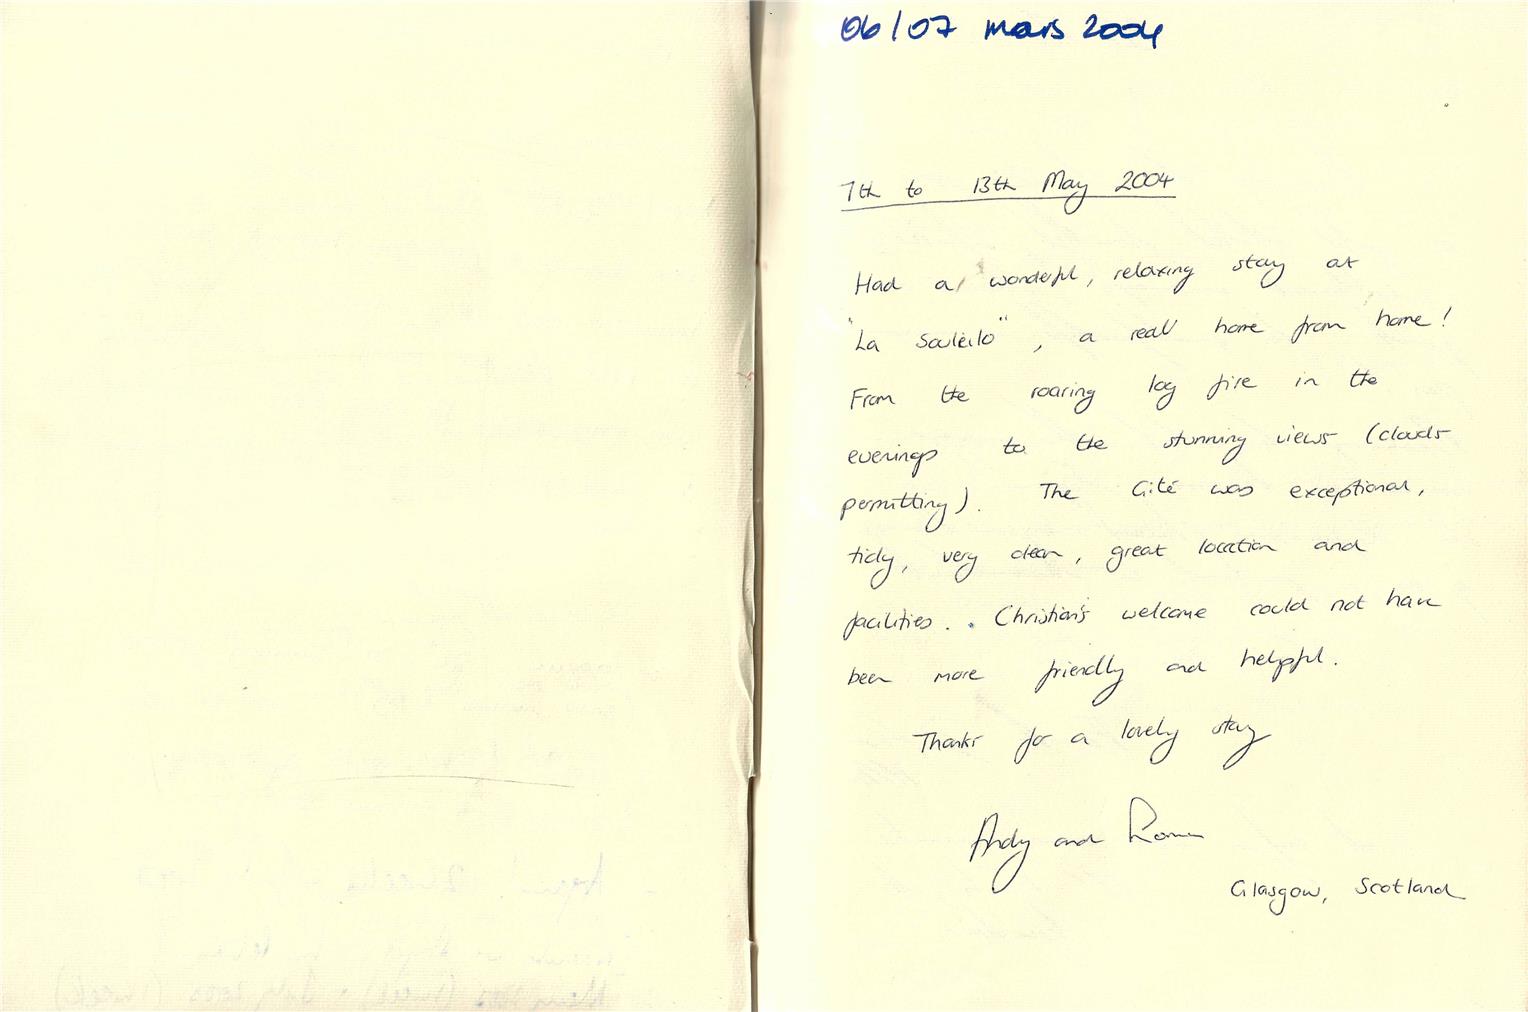 06/07 mars 2004
7th to 13th May 2004
Had a wonderful, relaxing stay at
"La Souleilo", a real home from home!
From the roaring log fire in the
evenings to the stunning views (clouds
permitting). The Gité was exceptional,
tidy, very clean, great location and
facilities. . Christian's welcome could not have
been more friendly and helpful.
Thanks for a lovely stay
Andy and
Glasgow, Scotland